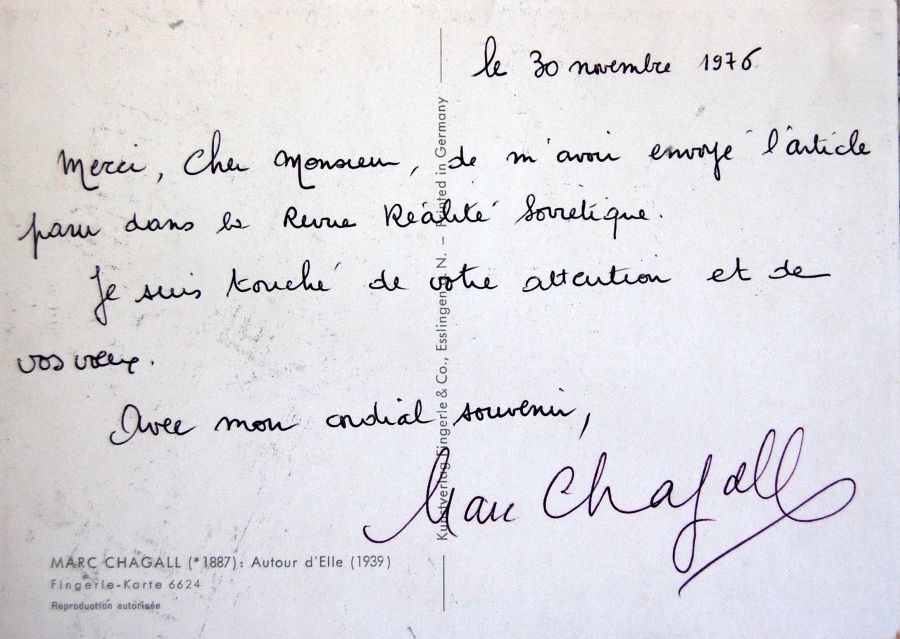 le 30 novembre 1976
Merci, Cher Monsieur, de m'avoir envoyé l'article
paru dans la Revue Réalité Soviétique.
Je suis touché de votre attention et de
vos voeux.
Avec mon cordial souvenir,
Marc Chagall
Kunstverlag Fingerle & Co., Esslingen a. N. – Printed in Germany
MARC CHAGALL (*1887): Autour d'Elle (1939)
Fingerle-Karte 6624
Reproduction autorisée